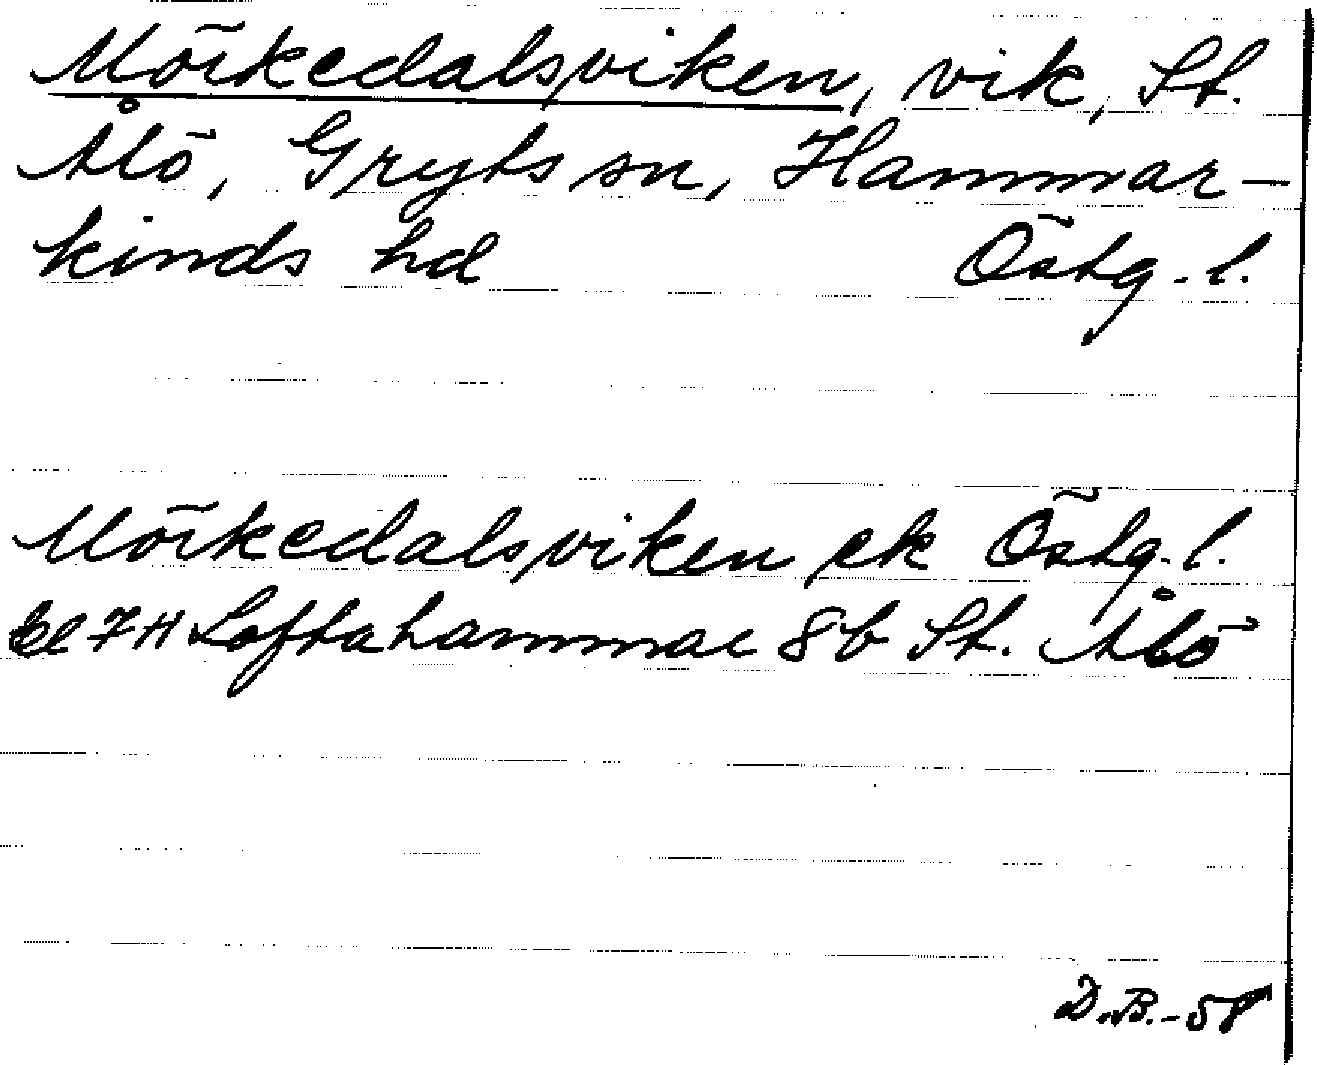 Mörkedalsviken, vik, St.
Ålö, Gryts sn, Hammar-
kinds hd Östg. l.
Mörkedalsviken ek Östg. l.
bl 7H Loftahammar 8b St. Ålö
D.B.-58